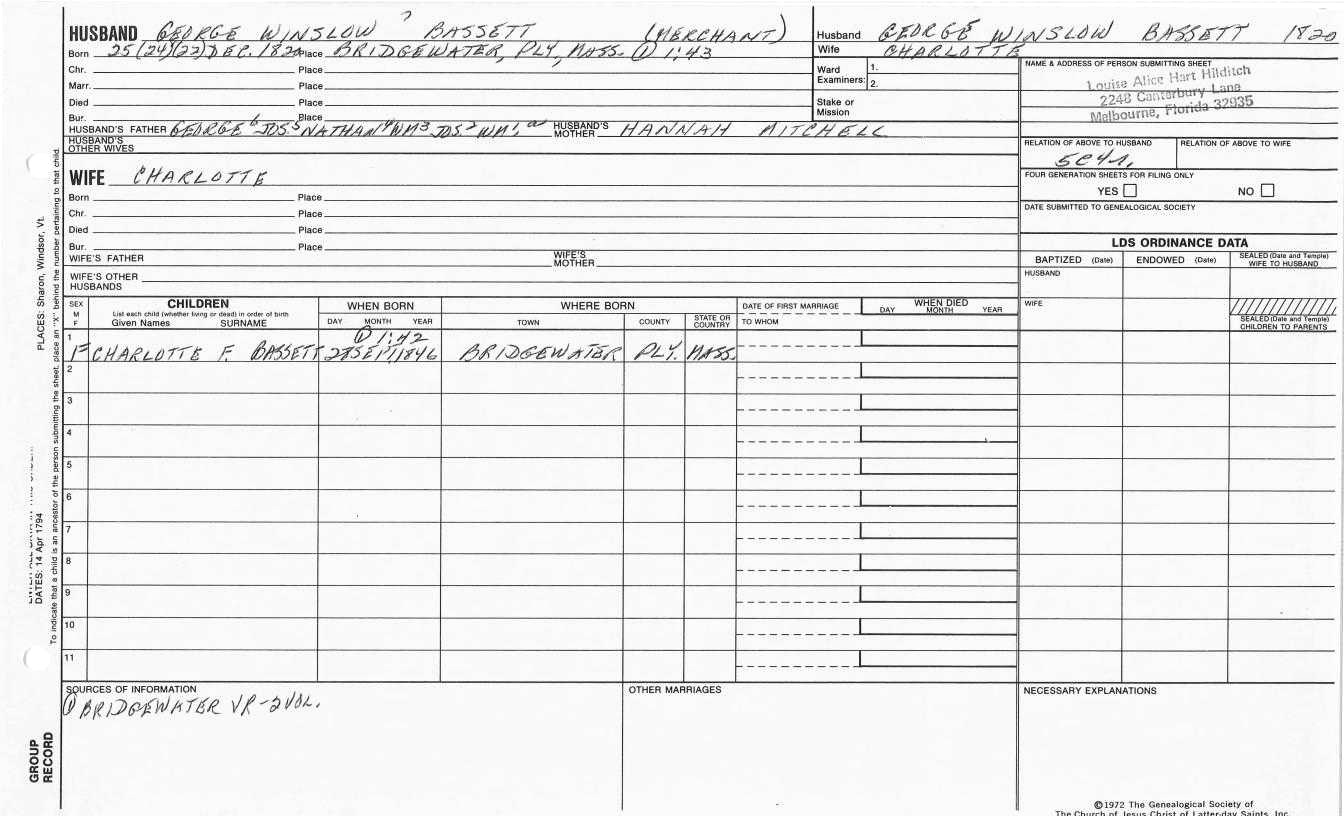 ?
HUSBAND GEORGE WINSLOW BASSETT (MERCHANT)
Born 25(24)(22) DEC. 1820 Place BRIDGEWATER, PLY, MASS. ① 1:43
Chr. Place
Marr. Place
Died Place
Bur. Place
HUSBAND'S FATHER GEORGE⁶ JOS⁵ NATHAN⁴ WM³ JOS² WM¹ HUSBAND'S MOTHER HANNAH MITCHELL
HUSBAND'S OTHER WIVES
WIFE CHARLOTTE
Born Place
Chr. Place
Died Place
Bur. Place
WIFE'S FATHER WIFE'S MOTHER
WIFE'S OTHER HUSBANDS
Husband GEORGE WINSLOW BASSETT 1820
Wife CHARLOTTE
Ward Examiners: 1.
2.
Stake or Mission
NAME & ADDRESS OF PERSON SUBMITTING SHEET
Louise Alice Hart Hilditch
2248 Canterbury Lane
Melbourne, Florida 32935
RELATION OF ABOVE TO HUSBAND RELATION OF ABOVE TO WIFE
5C4R
FOUR GENERATION SHEETS FOR FILING ONLY
YES NO
DATE SUBMITTED TO GENEALOGICAL SOCIETY
LDS ORDINANCE DATA
BAPTIZED (Date) ENDOWED (Date) SEALED (Date and Temple) WIFE TO HUSBAND
HUSBAND
WIFE
SEALED (Date and Temple) CHILDREN TO PARENTS
SEX M F
CHILDREN
List each child (whether living or dead) in order of birth
Given Names SURNAME
WHEN BORN
DAY MONTH YEAR
WHERE BORN
TOWN COUNTY STATE OR COUNTRY
DATE OF FIRST MARRIAGE
TO WHOM
WHEN DIED
DAY MONTH YEAR
① 1:42
1 F CHARLOTTE F. BASSETT 28 SEPT 1846 BRIDGEWATER PLY. MASS.
2
3
4
5
6
7
8
9
10
11
SOURCES OF INFORMATION
① BRIDGEWATER VR-2VOL.
OTHER MARRIAGES
NECESSARY EXPLANATIONS
©1972 The Genealogical Society of
The Church of Jesus Christ of Latter-day Saints, Inc.
PLACES: Sharon, Windsor, Vt.
DATES: 14 Apr 1794
To indicate that a child is an ancestor of the person submitting the sheet, place an "X" behind the number pertaining to that child.
GROUP RECORD